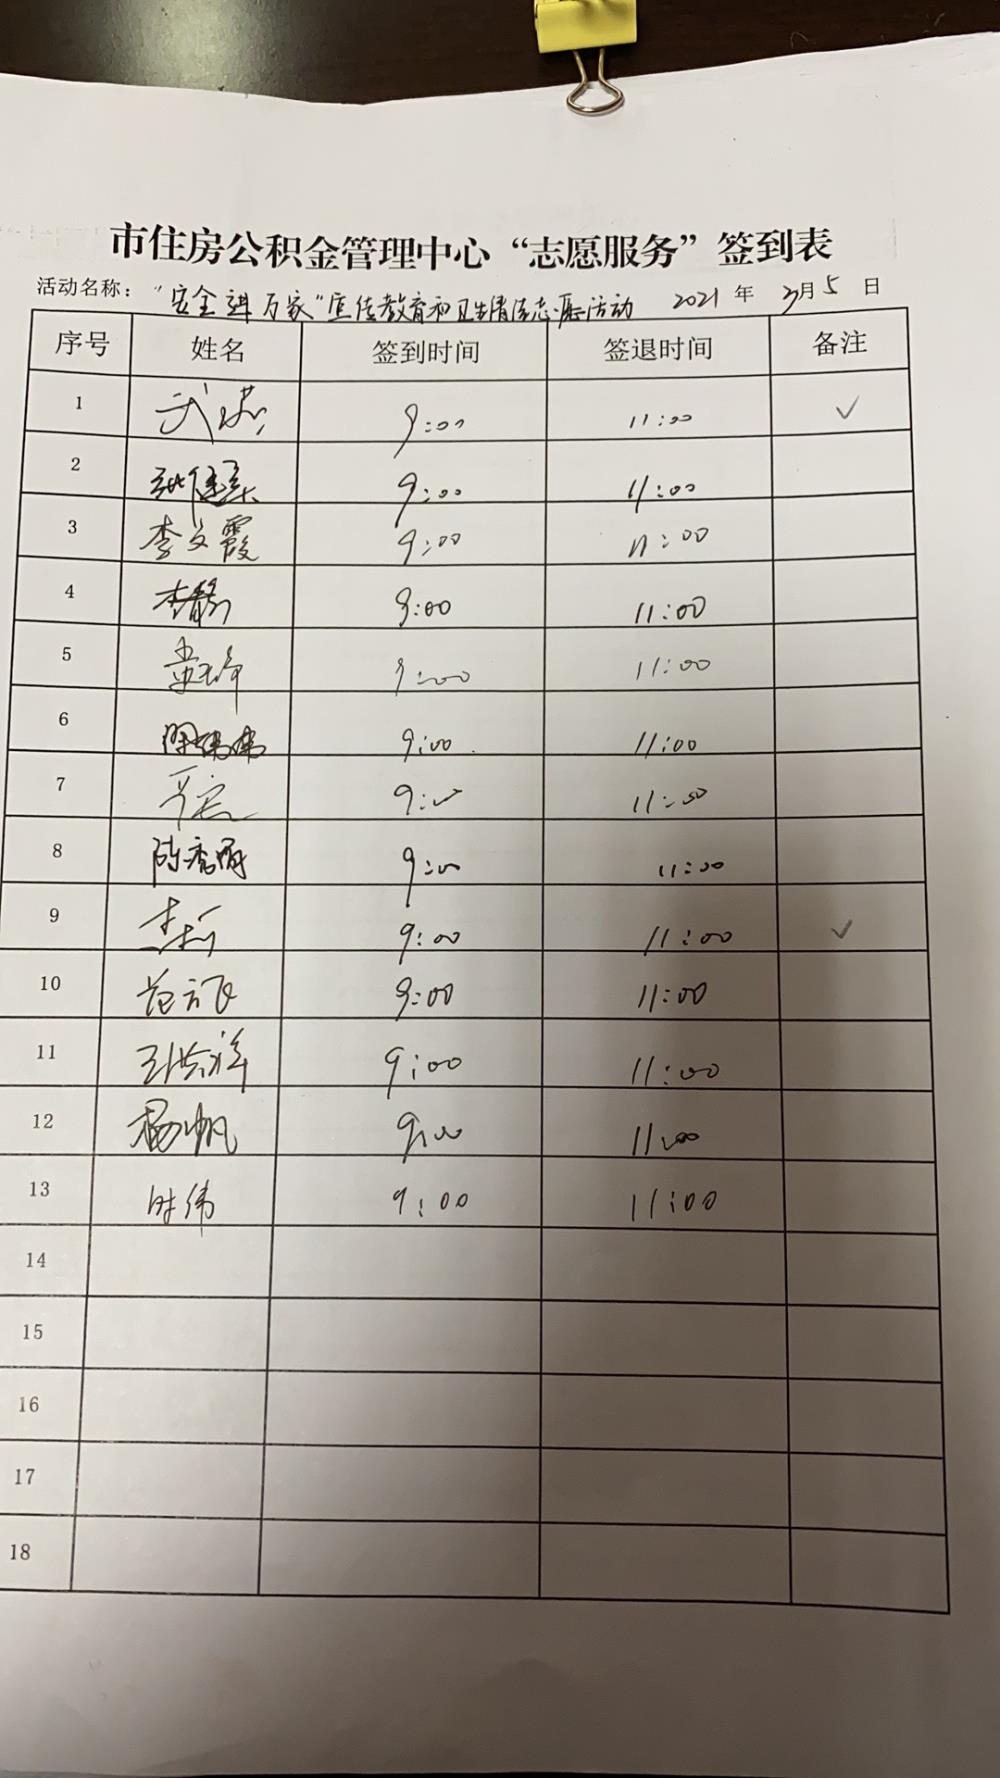 市住房公积金管理中心“志愿服务”签到表
活动名称：“安全进万家”宣传教育和卫生清洁志愿活动 2021 年 3月 5 日
序号 姓名 签到时间 签退时间 备注
1 武 9:00 11:00 ✓
2 9:00 11:00
3 李文霞 9:00 11:00
4 李 9:00 11:00
5 9:00 11:00
6 9:00 11:00
7 9:00 11:00
8 陈 9:00 11:00
9 9:00 11:00 ✓
10 9:00 11:00
11 9:00 11:00
12 杨帆 9:00 11:00
13 时伟 9:00 11:00
14
15
16
17
18